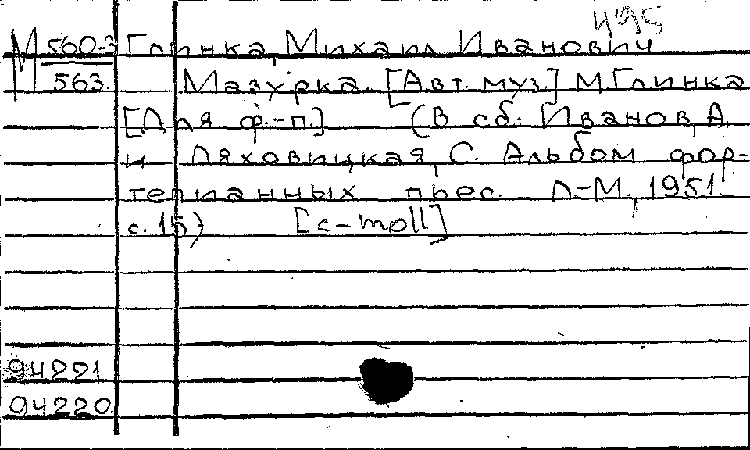 495
М 560-3 Глинка, Михаил Иванович
563 Мазурка. [Авт. муз.] М. Глинка
[Для ф.-п.] (В сб.: Иванов, А.
и Ляховицкая, С. Альбом фор-
тепианных пьес. Л.-М., 1951.
с. 15) [c-moll]
94221
94220